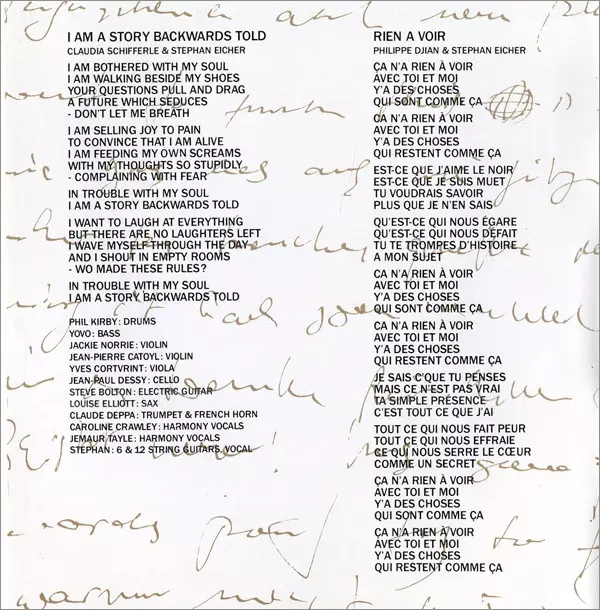 I AM A STORY BACKWARDS TOLD
CLAUDIA SCHIFFERLE & STEPHAN EICHER
I AM BOTHERED WITH MY SOUL
I AM WALKING BESIDE MY SHOES
YOUR QUESTIONS PULL AND DRAG
A FUTURE WHICH SEDUCES
- DON'T LET ME BREATH
I AM SELLING JOY TO PAIN
TO CONVINCE THAT I AM ALIVE
I AM FEEDING MY OWN SCREAMS
WITH MY THOUGHTS SO STUPIDLY
- COMPLAINING WITH FEAR
IN TROUBLE WITH MY SOUL
I AM A STORY BACKWARDS TOLD
I WANT TO LAUGH AT EVERYTHING
BUT THERE ARE NO LAUGHTERS LEFT
I WAVE MYSELF THROUGH THE DAY
AND I SHOUT IN EMPTY ROOMS
- WO MADE THESE RULES?
IN TROUBLE WITH MY SOUL
I AM A STORY BACKWARDS TOLD
PHIL KIRBY: DRUMS
YOVO: BASS
JACKIE NORRIE: VIOLIN
JEAN-PIERRE CATOYL: VIOLIN
YVES CORTVRINT: VIOLA
JEAN-PAUL DESSY: CELLO
STEVE BOLTON: ELECTRIC GUITAR
LOUISE ELLIOTT: SAX
CLAUDE DEPPA: TRUMPET & FRENCH HORN
CAROLINE CRAWLEY: HARMONY VOCALS
JEMAUR TAYLE: HARMONY VOCALS
STEPHAN: 6 & 12 STRING GUITARS, VOCAL
RIEN A VOIR
PHILIPPE DJIAN & STEPHAN EICHER
ÇA N'A RIEN À VOIR
AVEC TOI ET MOI
Y'A DES CHOSES
QUI SONT COMME ÇA
ÇA N'A RIEN À VOIR
AVEC TOI ET MOI
Y'A DES CHOSES
QUI RESTENT COMME ÇA
EST-CE QUE J'AIME LE NOIR
EST-CE QUE JE SUIS MUET
TU VOUDRAIS SAVOIR
PLUS QUE JE N'EN SAIS
QU'EST-CE QUI NOUS ÉGARE
QU'EST-CE QUI NOUS DÉFAIT
TU TE TROMPES D'HISTOIRE
A MON SUJET
ÇA N'A RIEN À VOIR
AVEC TOI ET MOI
Y'A DES CHOSES
QUI SONT COMME ÇA
ÇA N'A RIEN À VOIR
AVEC TOI ET MOI
Y'A DES CHOSES
QUI RESTENT COMME ÇA
JE SAIS C'QUE TU PENSES
MAIS CE N'EST PAS VRAI
TA SIMPLE PRÉSENCE
C'EST TOUT CE QUE J'AI
TOUT CE QUI NOUS FAIT PEUR
TOUT CE QUI NOUS EFFRAIE
CE QUI NOUS SERRE LE CŒUR
COMME UN SECRET
ÇA N'A RIEN À VOIR
AVEC TOI ET MOI
Y'A DES CHOSES
QUI SONT COMME ÇA
ÇA N'A RIEN À VOIR
AVEC TOI ET MOI
Y'A DES CHOSES
QUI RESTENT COMME ÇA